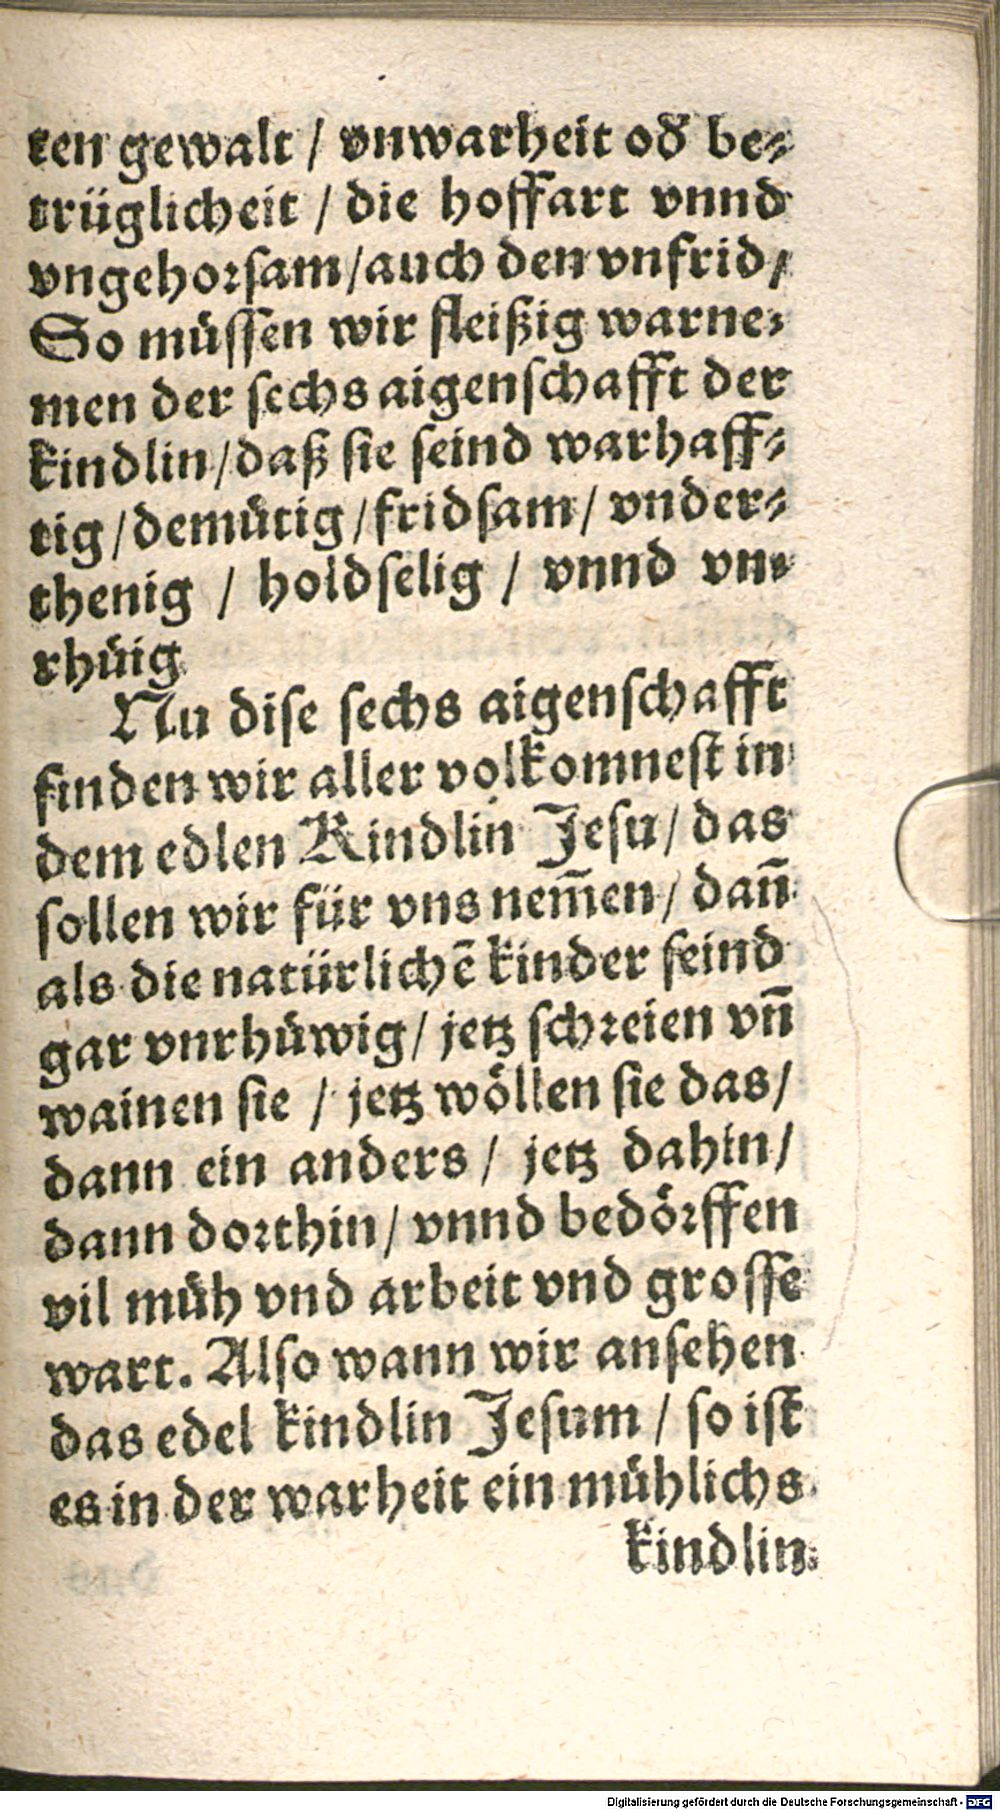 ten gewalt / vnwarheit od̕ be⸗
trüglicheit / die hoffart vnnd
vngehoꝛſam/auch den vnfrid/
So müſſen wir fleißig warne⸗
men der ſechs aigenſchafft der
kindlin/daß ſie ſeind warhaff⸗
tig/demuͤtig/fridſam/ vnder⸗
thenig / holdſelig / vnnd vn⸗
rhuͤig
Nu diſe ſechs aigenſchafft
finden wir aller volkomneſt in
dem edlen Kindlin Jeſu/ das
ſollen wir für vns nem̄en/ dan̄
als die natürlichē kinder ſeind
gar vnrhuͤwig/ jetz ſchꝛeien vn̄
wainen ſie / jetz woͤllen ſie das/
dann ein anders/ jetz dahin/
dann doꝛthin/ vnnd bedoͤꝛffen
vil muͤh vnd arbeit vnd groſſe
wart. Alſo wann wir anſehen
das edel kindlin Jeſum / ſo iſt
es in der warheit ein muͤhlichs
kindlin:
Digitalisierung gefördert durch die Deutsche Forschungsgemeinschaft - DFG